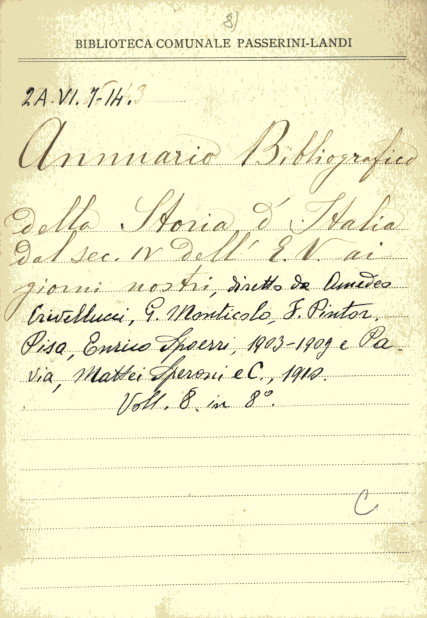 8)
BIBLIOTECA COMUNALE PASSERINI-LANDI
2A.VI.7-14.
Annuario Bibliografico
della Storia d'Italia
dal sec. IV dell' E. V. ai
giorni nostri, diretto da Amedeo
Crivellucci, G. Monticolo, F. Pintor,
Pisa, Enrico Spoerri, 1903-1909 e Pa-
via, Mattei Speroni e C., 1910.
Voll. 8. in 8º.
C